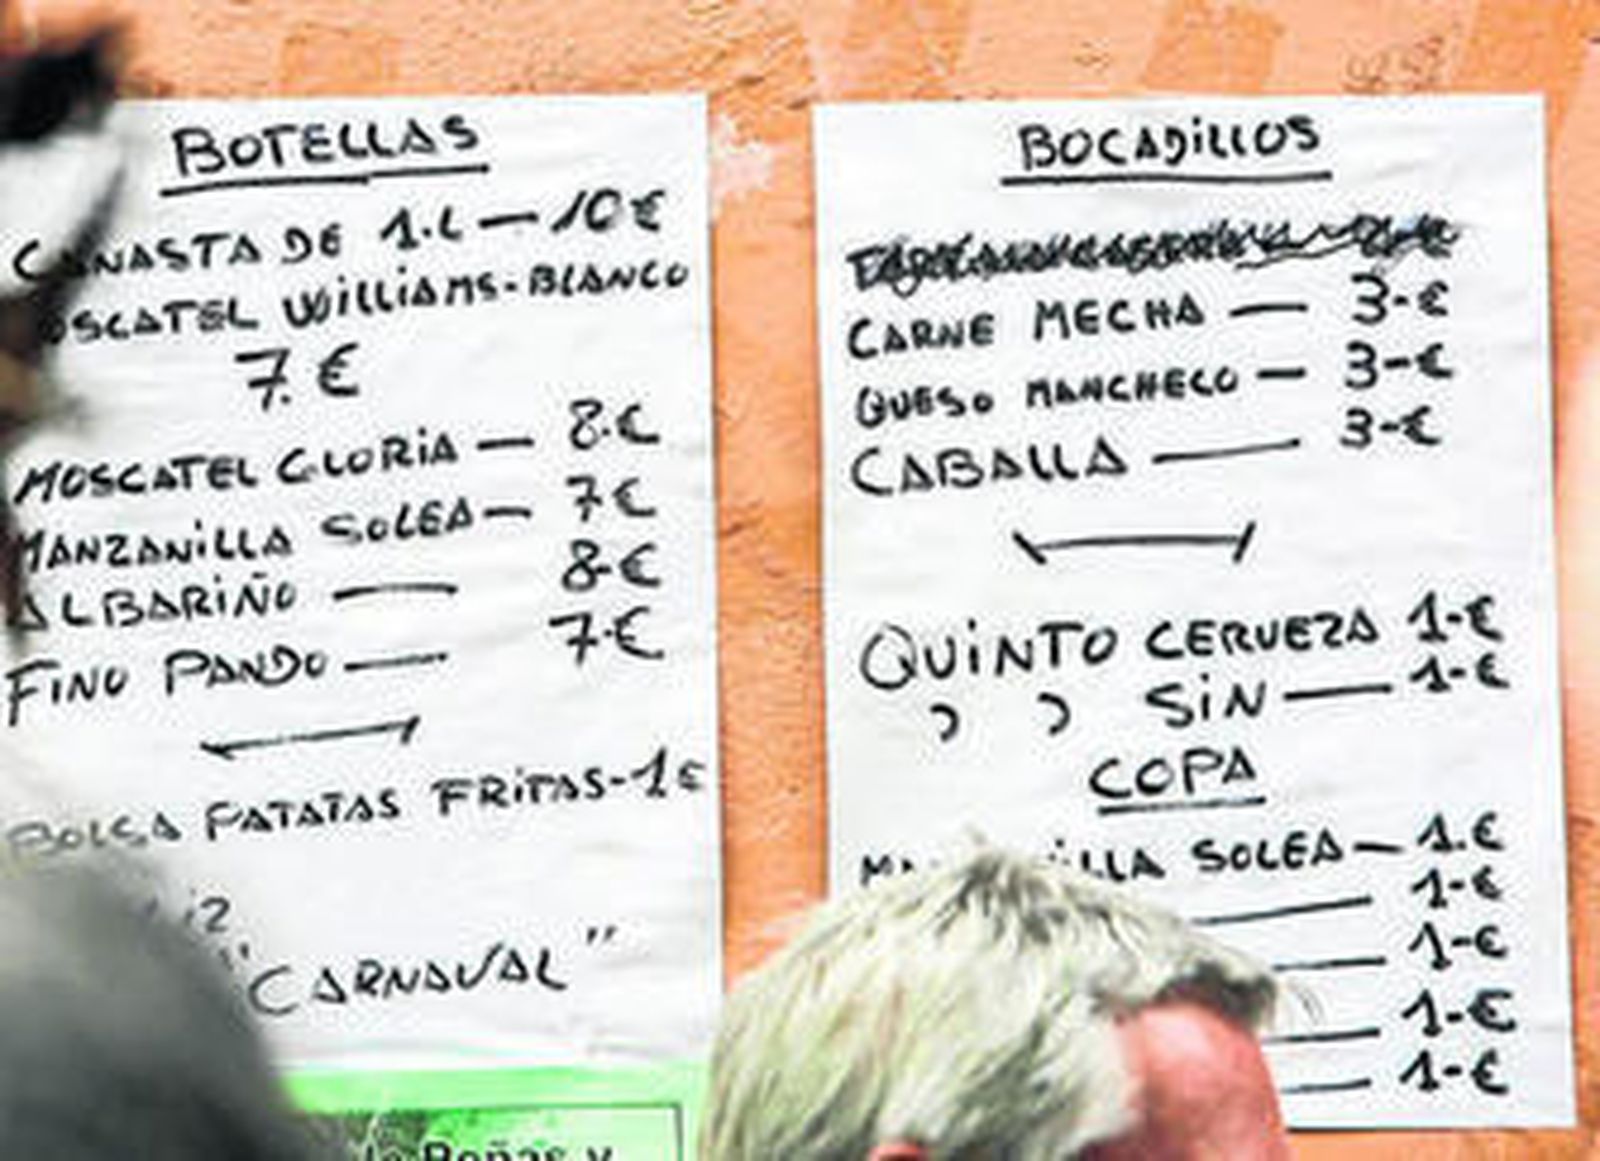 BOTELLAS
CANASTA DE 1.L — 10€
OSCATEL WILLIAMS-BLANCO
7.€
MOSCATEL GLORIA — 8.€
MANZANILLA SOLEA — 7€
ALBARIÑO — 8-€
FINO PANDO — 7.€
BOLSA PATATAS FRITAS-1€
"CARNAVAL"
BOCADILLOS
CARNE MECHA — 3-€
QUESO MANCHECO — 3-€
CABALLA — 3-€
QUINTO CERVEZA 1-€
" " SIN — 1-€
COPA
ILLA SOLEA — 1.€
— 1-€
— 1-€
— 1-€
— 1-€
de Peñas y